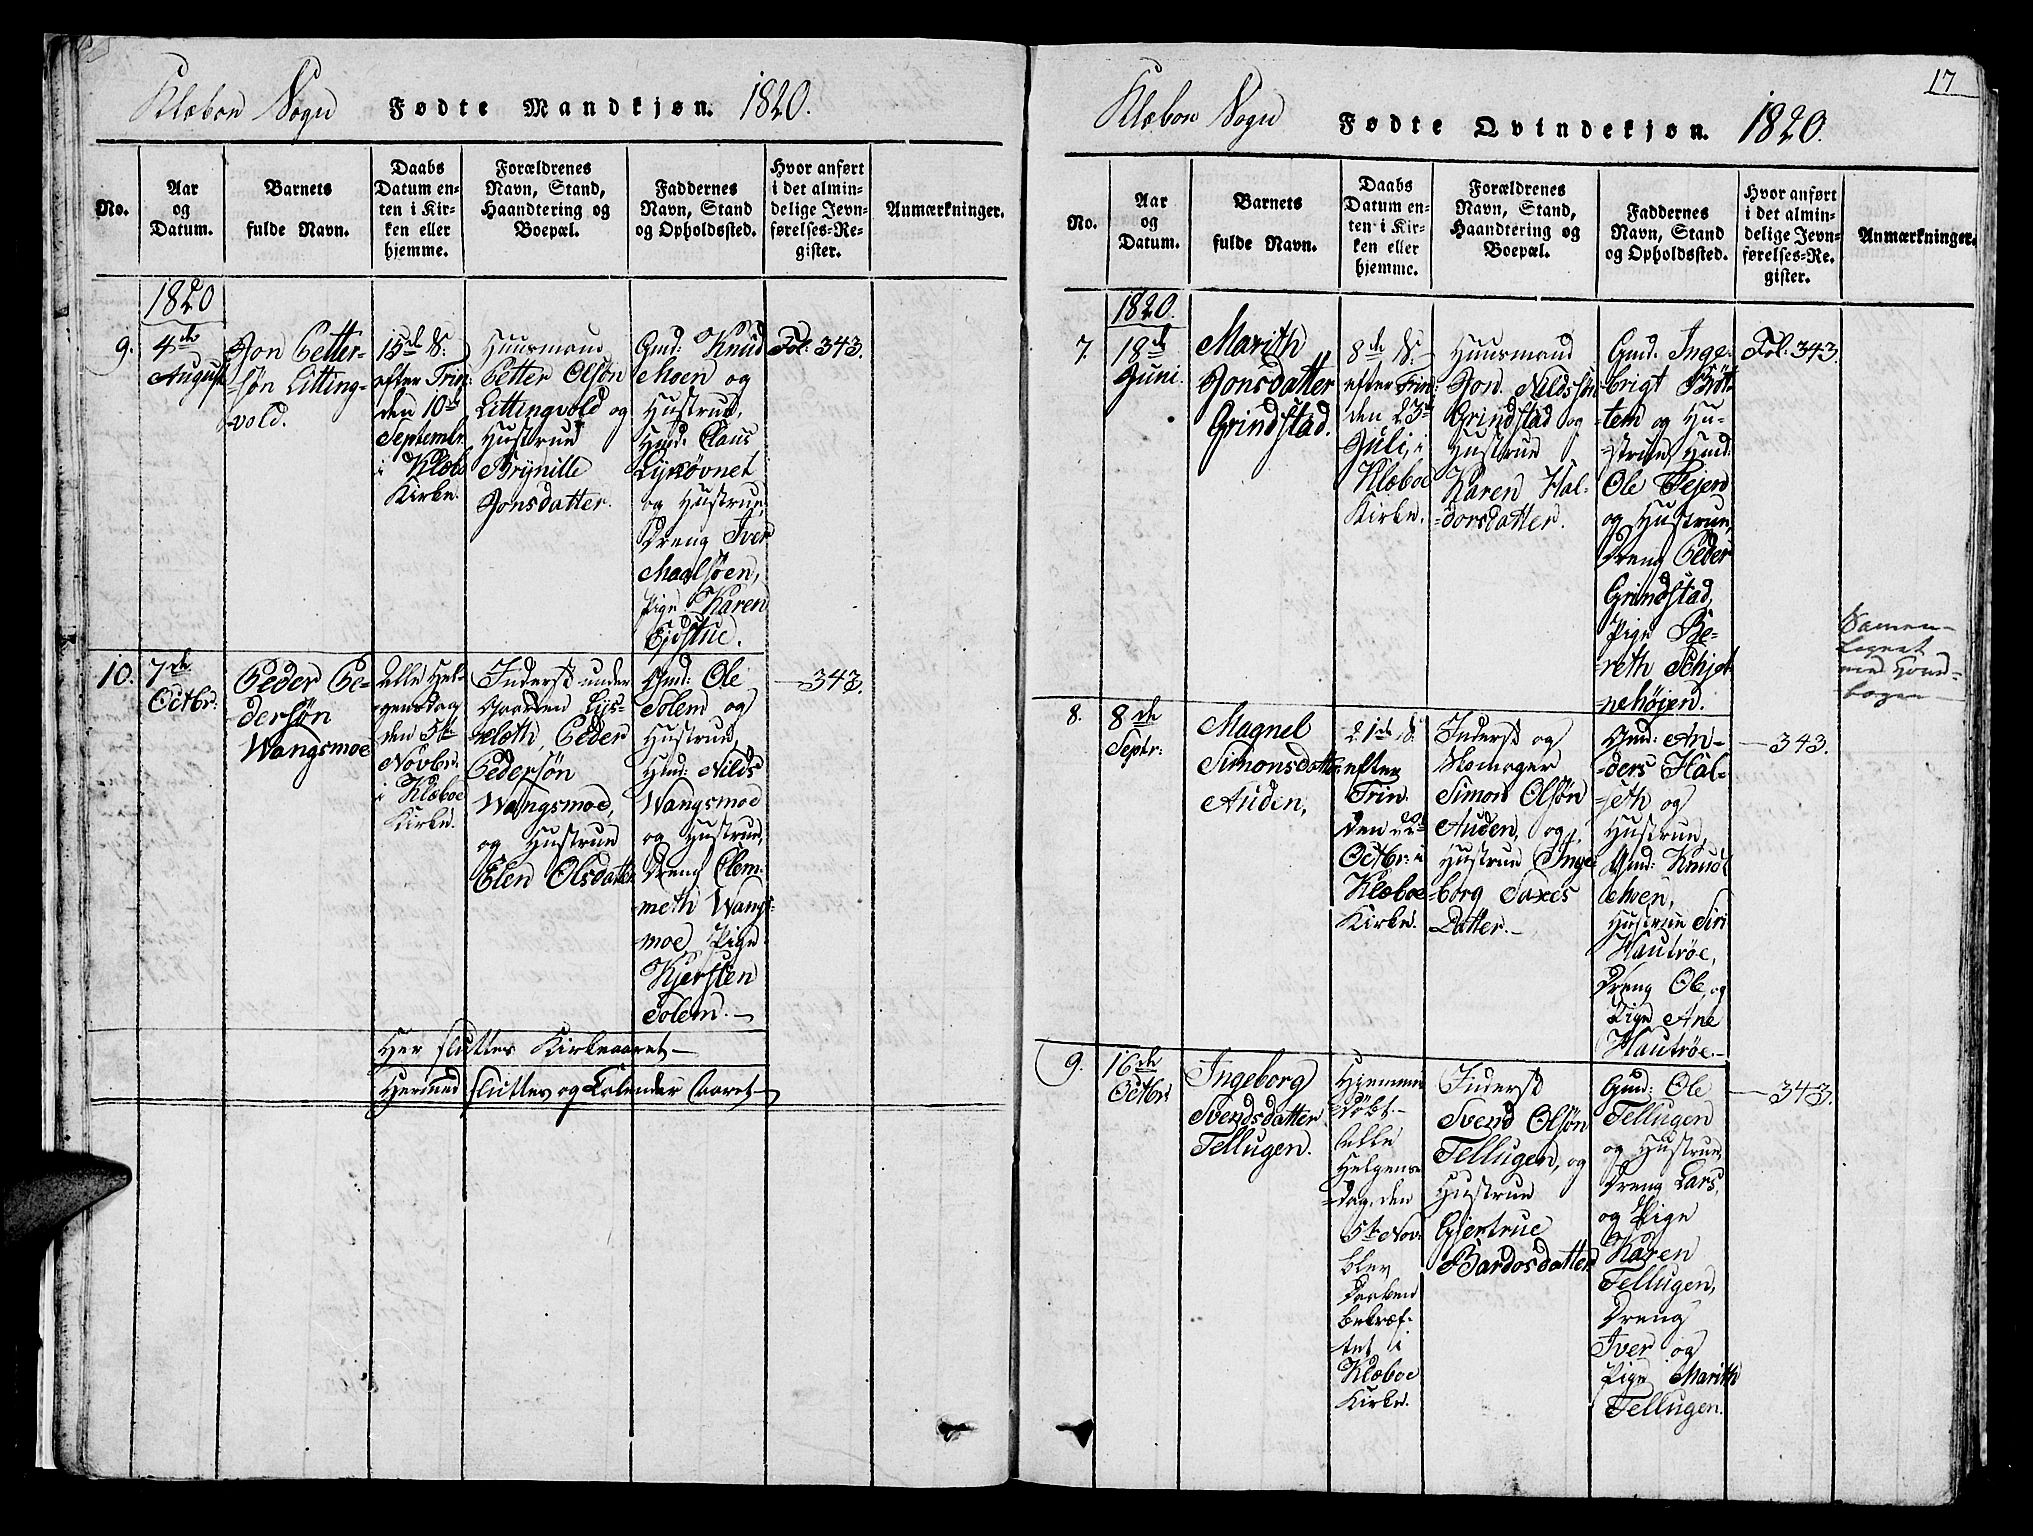 Klæboe Sogn Fødte Mandkjøn. 1820.
No.
Aar
og
Datum.
Barnets
fulde Navn.
Daabs
Datum en-
ten i Kir-
ken eller
hjemme.
Forældrenes
Navn, Stand,
Haandtering og
Boepæl.
Faddernes
Navn, Stand
og Opholdssted.
Hvor anført
i det almin-
delige Jevn-
førelses-Re-
gister.
Anmærkninger.
1820
9.
4de
August
Jon Petter-
søn Litting-
vold.
15de S:
efter Trin:
den 10de
Septembr
i Klæbo
Kirke.
Huusmand
Petter Olsøn
Littingvold og
Hustrue
Brynille
Jonsdatter.
Gmd: Knud
Moen og
Hustrue,
Hmd: Claus
og Hustrue,
Dreng Iver
Maalsøen,
Pige Karen
Eidstue.
Fol: 343.
10.
7de
Octbr:
Peder Pe-
dersøn
Wangsmoe
Alle Hel-
gensdag
den 5te
Novbr:
i Klæboe
Kirke.
Inderst under
Gaarden Lys-
klæth, Peder
Pedersøn
Wangsmoe,
og Hustrue
Elen Olsdatter
Gmd: Ole
Solem og
Hustrue,
Hmd: Nilds
Wangsmoe
og Hustrue,
Dreng Clem-
meth Wangs-
moe, Pige
Kjersten
Solem.—
—343.
Her sluttes Kirkeaaret—
Hermed sluttes og Calender Aaret—
17
Klæboe Sogn Fødte Qvindekjøn. 1820.
No.
Aar
og
Datum.
Barnets
fulde Navn.
Daabs
Datum en-
ten i Kir-
ken eller
hjemme.
Forældrenes
Navn, Stand,
Haandtering og
Boepæl.
Faddernes
Navn, Stand
og Opholdssted.
Hvor anført
i det almin-
delige Jevn-
førelses-Re-
gister.
Anmærkninger.
1820.
7.
18de
Juni.
Marith
Jonsdatter
Grindstad.
8de S:
efter Trin:
den 23de
Juli, i
Klæboe
Kirke.
Huusmand
Jon Nildssøn
Grindstad og
Hustrue
Karen Hal-
dorsdatter.
Gmd. Inge-
brigt Brøt-
tem og Hu-
strue, Hmd.
Ole Tejen
og Hustrue,
Dreng Peder
Grindstad,
Pige Be-
reth Schjet-
nehøjen.
Fol: 343
Samen-
lignet
med Hoved-
bogen
8.
8de
Septr:
Magnel
Simonsdatter
Auden,
21de S:
efter
Trin.
den 22de
Octbr: i
Klæboe
Kirke.
Inderst og
Skomager
Simon Olsøn
Auden, og
Hustrue Inge-
borg Saxes
Datter.—
Gmd: An-
ders Hal-
seth og
Hustrue,
Gmd: Knud
Hustrue Siri
Hautrøe,
Dreng Ole, og
Pige Ane
Hautrøe.—
—343.
9.
16de
Octbr:
Ingeborg
Svendsdatter
Tellugen.
Hjemme-
døbt.—
Alle
Helgens-
dag, den
5te Nov:
blev
Daaben
bekræf-
tet i
Klæboe
Kirke.
Inderst
Svend Olsøn
Tellugen, og
Hustrue
Gjertrue
Bardosdatter
Gmd: Ole
Tellugen
og Hustrue,
Dreng Lars,
og Pige
Karen
Tellugen,
Dreng
Iver og
Pige Marith
Tellugen.
—343.